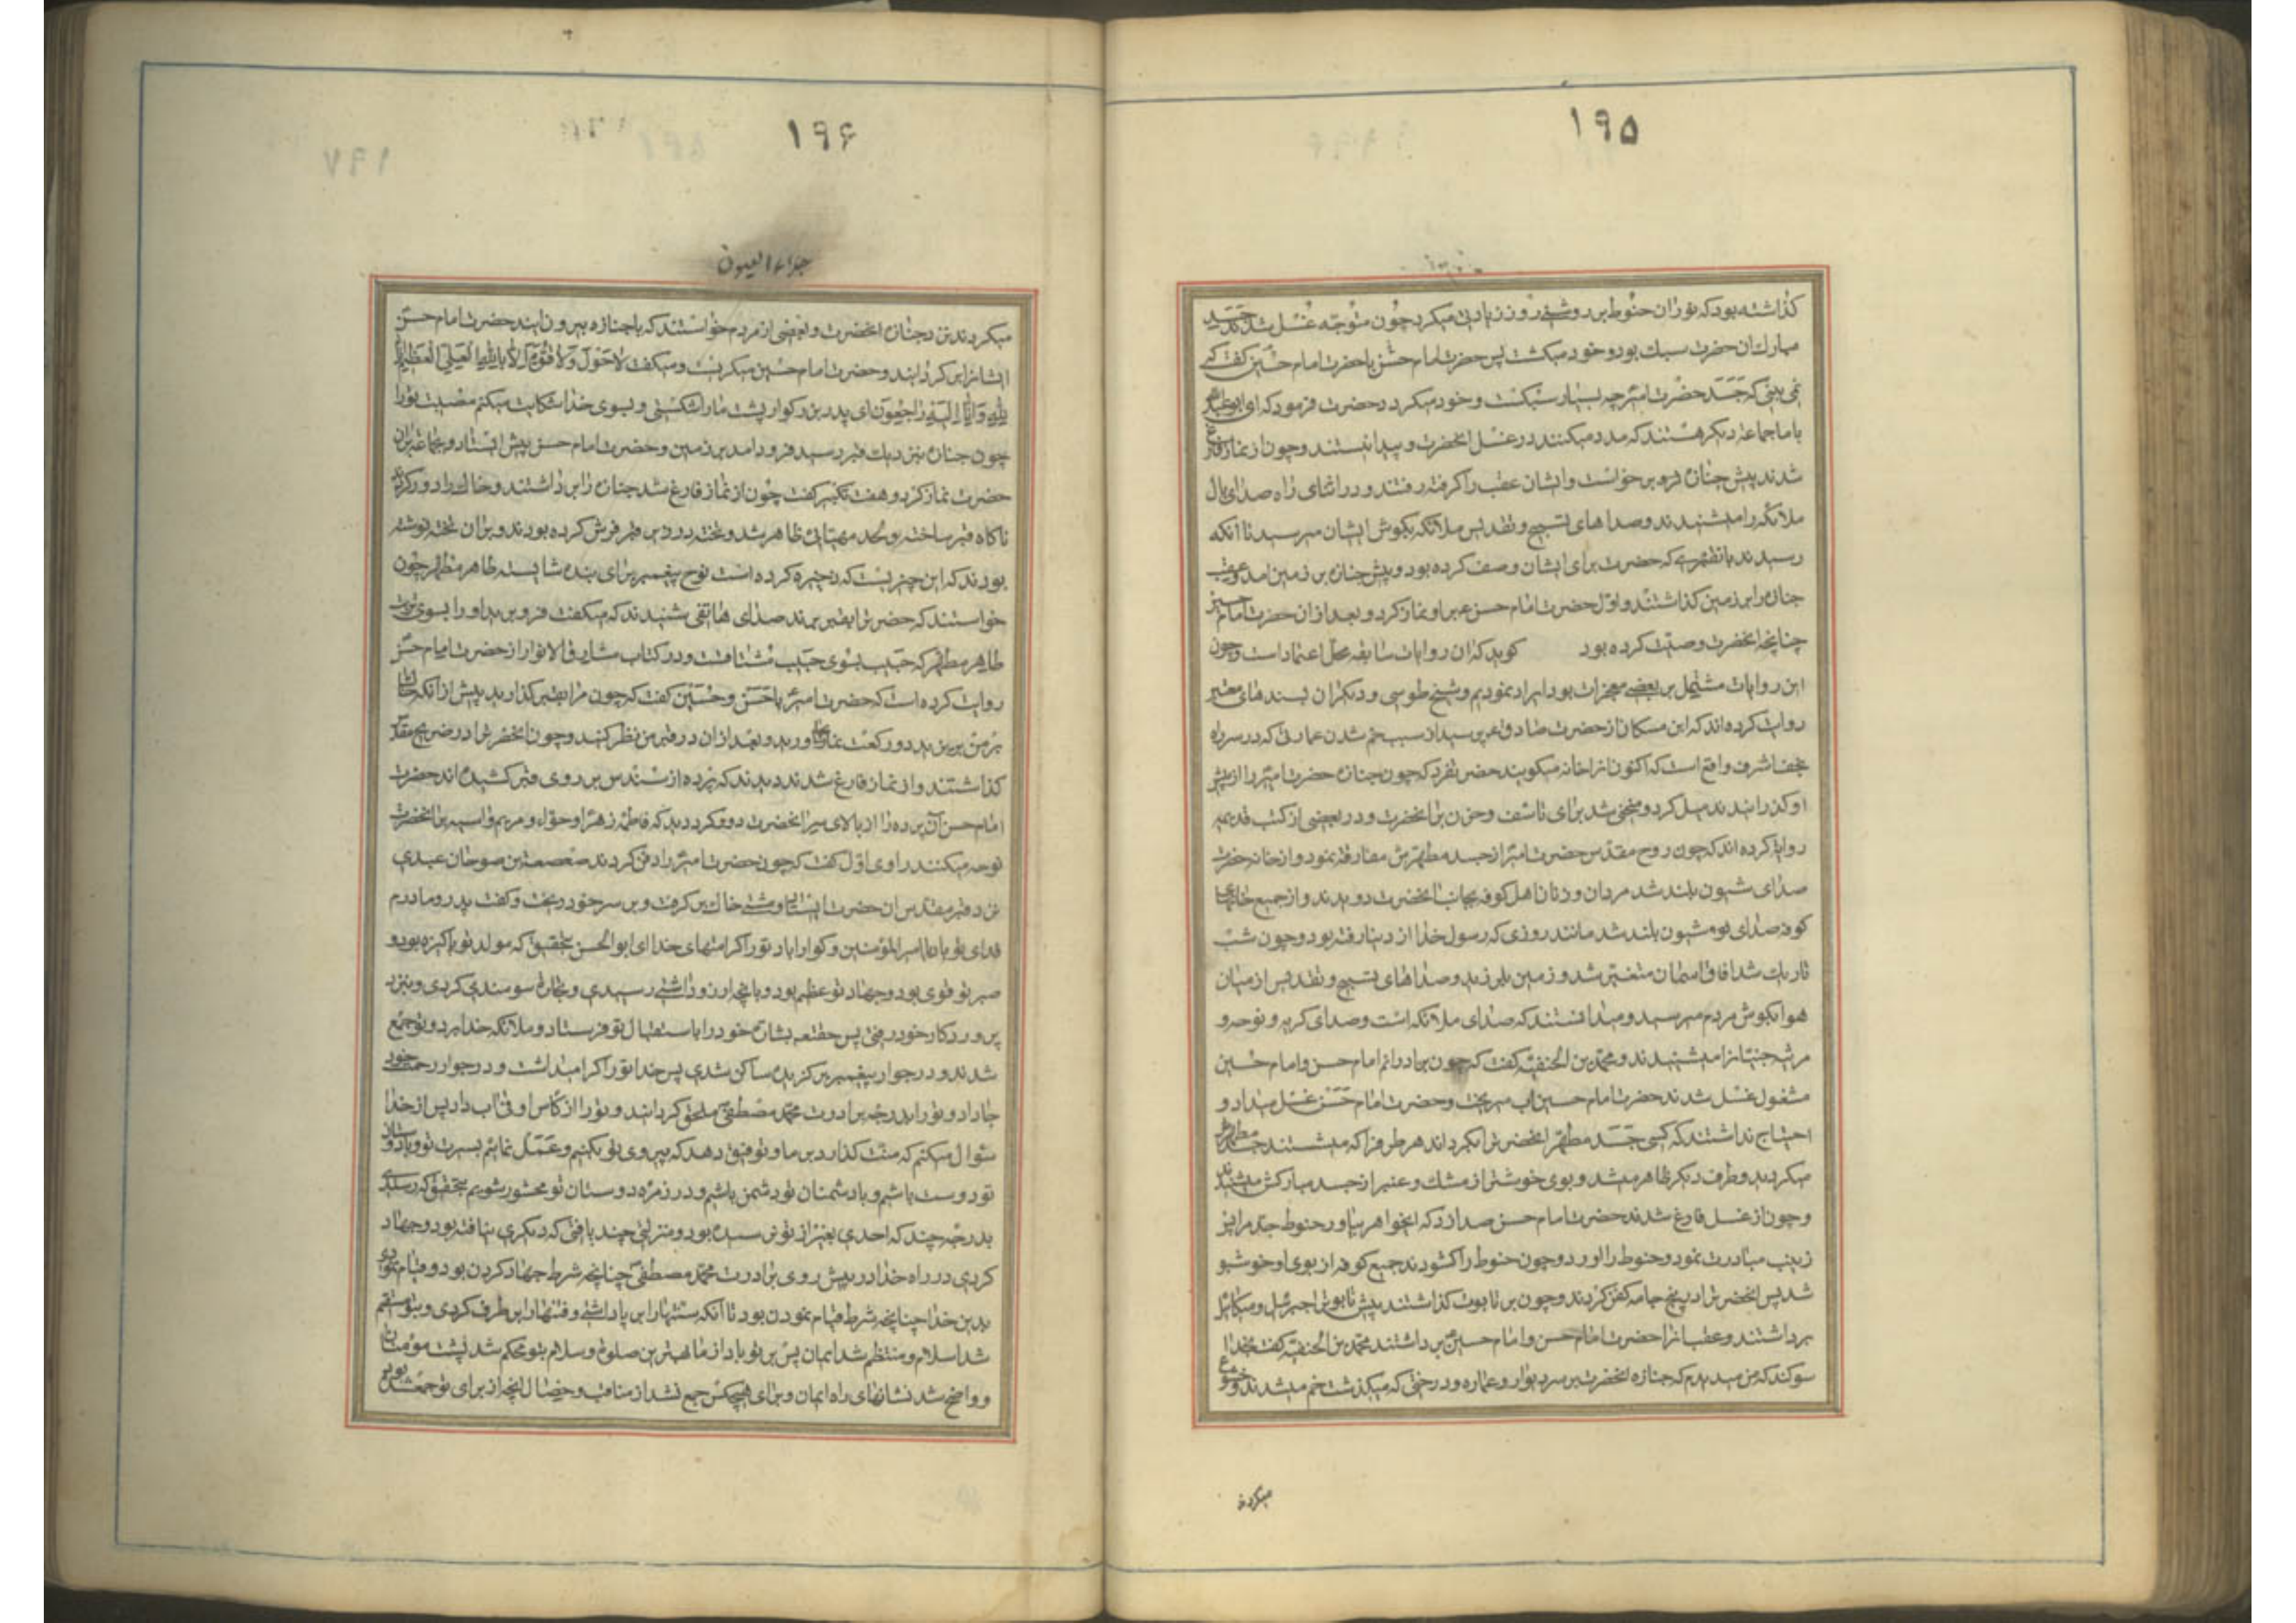 ۱۹۵
گذاشته بود که نوران حنوط بر روشنی روز زیادتی میکرد چون متوجه غسل شدند جسد
مبارک ان حضرت سبک بود و خود میکشت پس حضرت امام حسن با حضرت امام حسین گفت که
نمی بینی که جسد حضرت امیر چه بسیار سبکست و خود میکردد حضرت فرمود که ای ابو عبدالله
با ما جماعة دیکر هستند که مدد میکنند در غسل انحضرت و پیدا نیستند و چون از نماز فارغ
شدند پیش جنازه فرو برخواست و ایشان عقب را کرفته رفتند و در اثنای راه صدای بال
ملائکه را میشنیدند و صداهای تسبیح و تقدیس ملائکه بکوش ایشان میرسید تا انکه
رسیدند بانظهری که حضرت برای ایشان وصف کرده بود و پیش جنازه بر زمین امد و عقب
جنازه را بر زمین گذاشتند و اول حضرت امام حسن ع بر او نماز کرد و بعد از ان حضرت امام حسین
چنانچه انحضرت وصیت کرده بود کوید که ان روایات سابقه محل اعتماد است و چون
این روایات مشتمل بر بعضی معجزات بود ایراد نمودیم و شیخ طوسی و دیکران بسندهای معتبر
روایت کرده اند که ابن مسکان از حضرت صادق ع پرسید از سبب خم شدن عمارتی که در سر راه
نجف اشرف واقع است که اکنون انرا خانه میکویند حضرت فرمود که چون جنازه حضرت امیر را از پیش
او کذرانیدند میل کرد و منحنی شد برای تاسف و حزن بر انحضرت و در بعضی از کتب قدیمه
روایة کرده اند که چون روح مقدس حضرت امیر از جسد مطهرش مفارقت نمود و از خانه حضرت
صدای شیون بلند شد مردان و زنان اهل کوفه بجانب انحضرت دویدند و از جمیع خانهای
کوفه صدای نوم شیون بلند شد مانند روزی که رسول خدا از دنیا رفته بود و چون شب
تاریک شد افاق اسمان متغیر شد و زمین بلرزید و صداهای تسبیح و تقدیس از میان
هوا بکوش مردم میرسید و میدانستند که صدای ملائکه است و صدای کریه و نوحه و
مرثیه جنیانرا میشنیدند و محمد بن الحنفیه کفت که چون برادرانم امام حسن و امام حسین
مشغول غسل شدند حضرت امام حسین اب میریخت و حضرت امام حسن غسل میداد و
احتیاج نداشتند که کسی جسد مطهر انحضرت را بکرداند هر طرفرا که میشستند جسد مطهرش
میکردید و طرف دیکر ظاهر میشد و بوی خوشتر از مشک و عنبر از جسد مبارکش میشنیدند
و چون از غسل فارغ شدند حضرت امام حسن صدا زد که ایخواهر بیاور حنوط جد مرا پس
زینب مبادرت نمود و حنوط را اورد و چون حنوط را کشودند جمیع کوفه از بوی او خوشبو
شد پس انحضرت را در پنج جامه کفن کردند و چون بر تابوت گذاشتند پیش تابوت را جبرئیل و میکائیل
برداشتند و عقب انرا حضرت امام حسن و امام حسین برداشتند محمد بن الحنفیه کفت بخدا
سوکند که من میدیدم که جنازه انحضرت بر سر دیوار و عماره و درختی که میکذشت خم میشدند و خشوع
میکردند
۱۹۶
جلاء العیون
میکردند نزد جنازه انحضرت و بعضی از مردم خواستند که با جنازه بیرون ایند حضرت امام حسن
ایشانرا بر کردانید و حضرت امام حسین میکریست و میکفت لا حول و لا قوة الا بالله العلی العظیم
لله و انا الیه راجعون ای پدر بزرکوار پشت ما را شکستی و بسوی خدا شکایت میکنم مصیبت تورا
چون جنازه نزدیک قبر رسید فرود امد بر زمین و حضرت امام حسن پیش ایستاد و بجماعت بران
حضرت نماز کرد و هفت تکبیر کفت چون از نماز فارغ شد جنازه را برداشتند و خاک را دور کردند
ناکاه قبر ساخته و لحد مهیائی ظاهر شد و تخته در زیر قبر فرش کرده بودند و بر ان تخته نوشته
بودند که این چیزیست که ذخیره کرده است نوح پیغمبر برای بنده شایسته طاهر مطهر چون
خواستند که حضرت را بقبر برند صدای هاتفی شنیدند که میکفت فرو برید او را بسوی تربت
طاهر مطهر که حبیب بسوی حبیب مشتاقست و در کتاب مشارق الانوار از حضرت امام حسن
روایت کرده است که حضرت امیر با حسن و حسین کفت که چون مرا بقبر گذارید پیش از انکه خاک
بر من بریزید دو رکعت نماز بجا اورید و بعد از ان در قبر من نظر کنید و چون انحضرت را در ضریح مقدس
گذاشتند و از نماز فارغ شدند دیدند که پرده از سندس بر روی قبر کشیده اند حضرت
امام حسن آن پرده را از بالای سر انحضرت دور کرد دید که فاطمه زهرا و حواء و مریم و اسیه بر انحضرت
نوحه میکنند راوی اول کفت که چون حضرت امیر را دفن کردند صعصعة بن صوحان عبدی
نزد قبر مقدس ان حضرت ایستاد و مشتی خاک بر کرفت و بر سر خود ریخت و کفت پدر و مادرم
فدای تو باد یا امیر المؤمنین و کوارا باد تورا کرامتهای خدا ای ابو الحسن بتحقیق که مولد تو پاکیزه بود و
صبر تو قوی بود و جهاد تو عظیم بود و بانچه ارزو داشتی رسیدی و تجارة سودمندی کردی و بنزد
پرورد کار خود رفتی پس حقتعه بشارة خود را باستقبال تو فرستاد و ملائکه خدا برد و تو جمع
شدند و در جوار پیغمبر برکزیده ساکن شدی پس خدا تورا کرامی داشت و در جوار رحمت خود
جا داد و تورا بدرجه برادرت محمد مصطفی ملحق کردانید و تورا از کاس اوفی اب داد پس از خدا
سئوال میکنم که منت گذارد بر ما و توفیق دهد که پیروی تو بکنیم و عمل نمائیم بسیرت تو و با دوستان
تو دوست باشیم و با دشمنان تو دشمن باشیم و در زمره دوستان تو محشور شویم بتحقیق که رسیدی
بدرجه چند که احدی بغیر از تو نرسیده بود و منزلتی چند یافتی که دیکری نیافته بود و جهاد
کردی در راه خدا در پیش روی برادرت محمد مصطفی چنانچه شرط جهاد کردن بود و قیام نمودی
بدین خدا چنانچه شرط قیام نمودن بود تا انکه سنتها را بر پا داشتی و فتنها را بر طرف کردی و بتو مستقیم
شد اسلام و منتظم شد ایمان پس بر تو باد از ما بهترین صلوة و سلام بتو محکم شد پشت مؤمنان
و واضح شد نشانهای راه ایمان و برای هیچکس جمع نشد از مناقب و خصال انچه از برای تو جمع شد